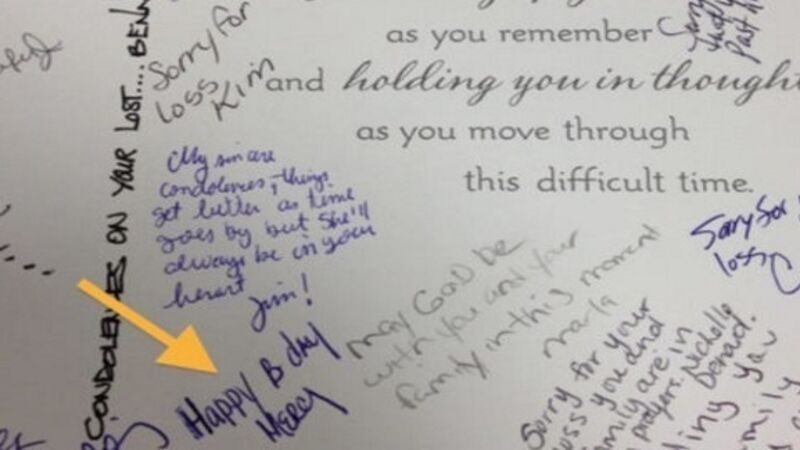 as you remember
and holding you in thought
as you move through
this difficult time.
Sorry for
loss
Kim
CONDOLENCES ON YOUR LOST.... BENN
My sincere
condolences, things
get better as time
goes by but she'll
always be in your
heart
Jim!
Happy B day
Mercy
may God be
with you and your
family in this moment
marla
Sorry for
loss
Sorry for your
loss you and
family are in
prayers. Nichelle